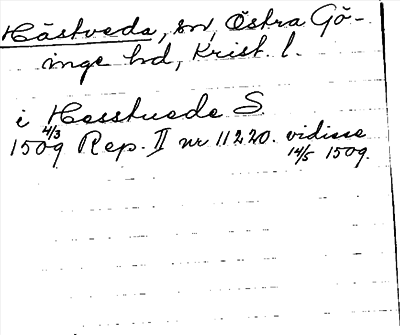 Hästveda, sn, Östra Gö-
inge hd, Krist. l.
i Hesstuede S.
1509 4/3 Rep. II nr 11220. vidisse
14/5 1509.